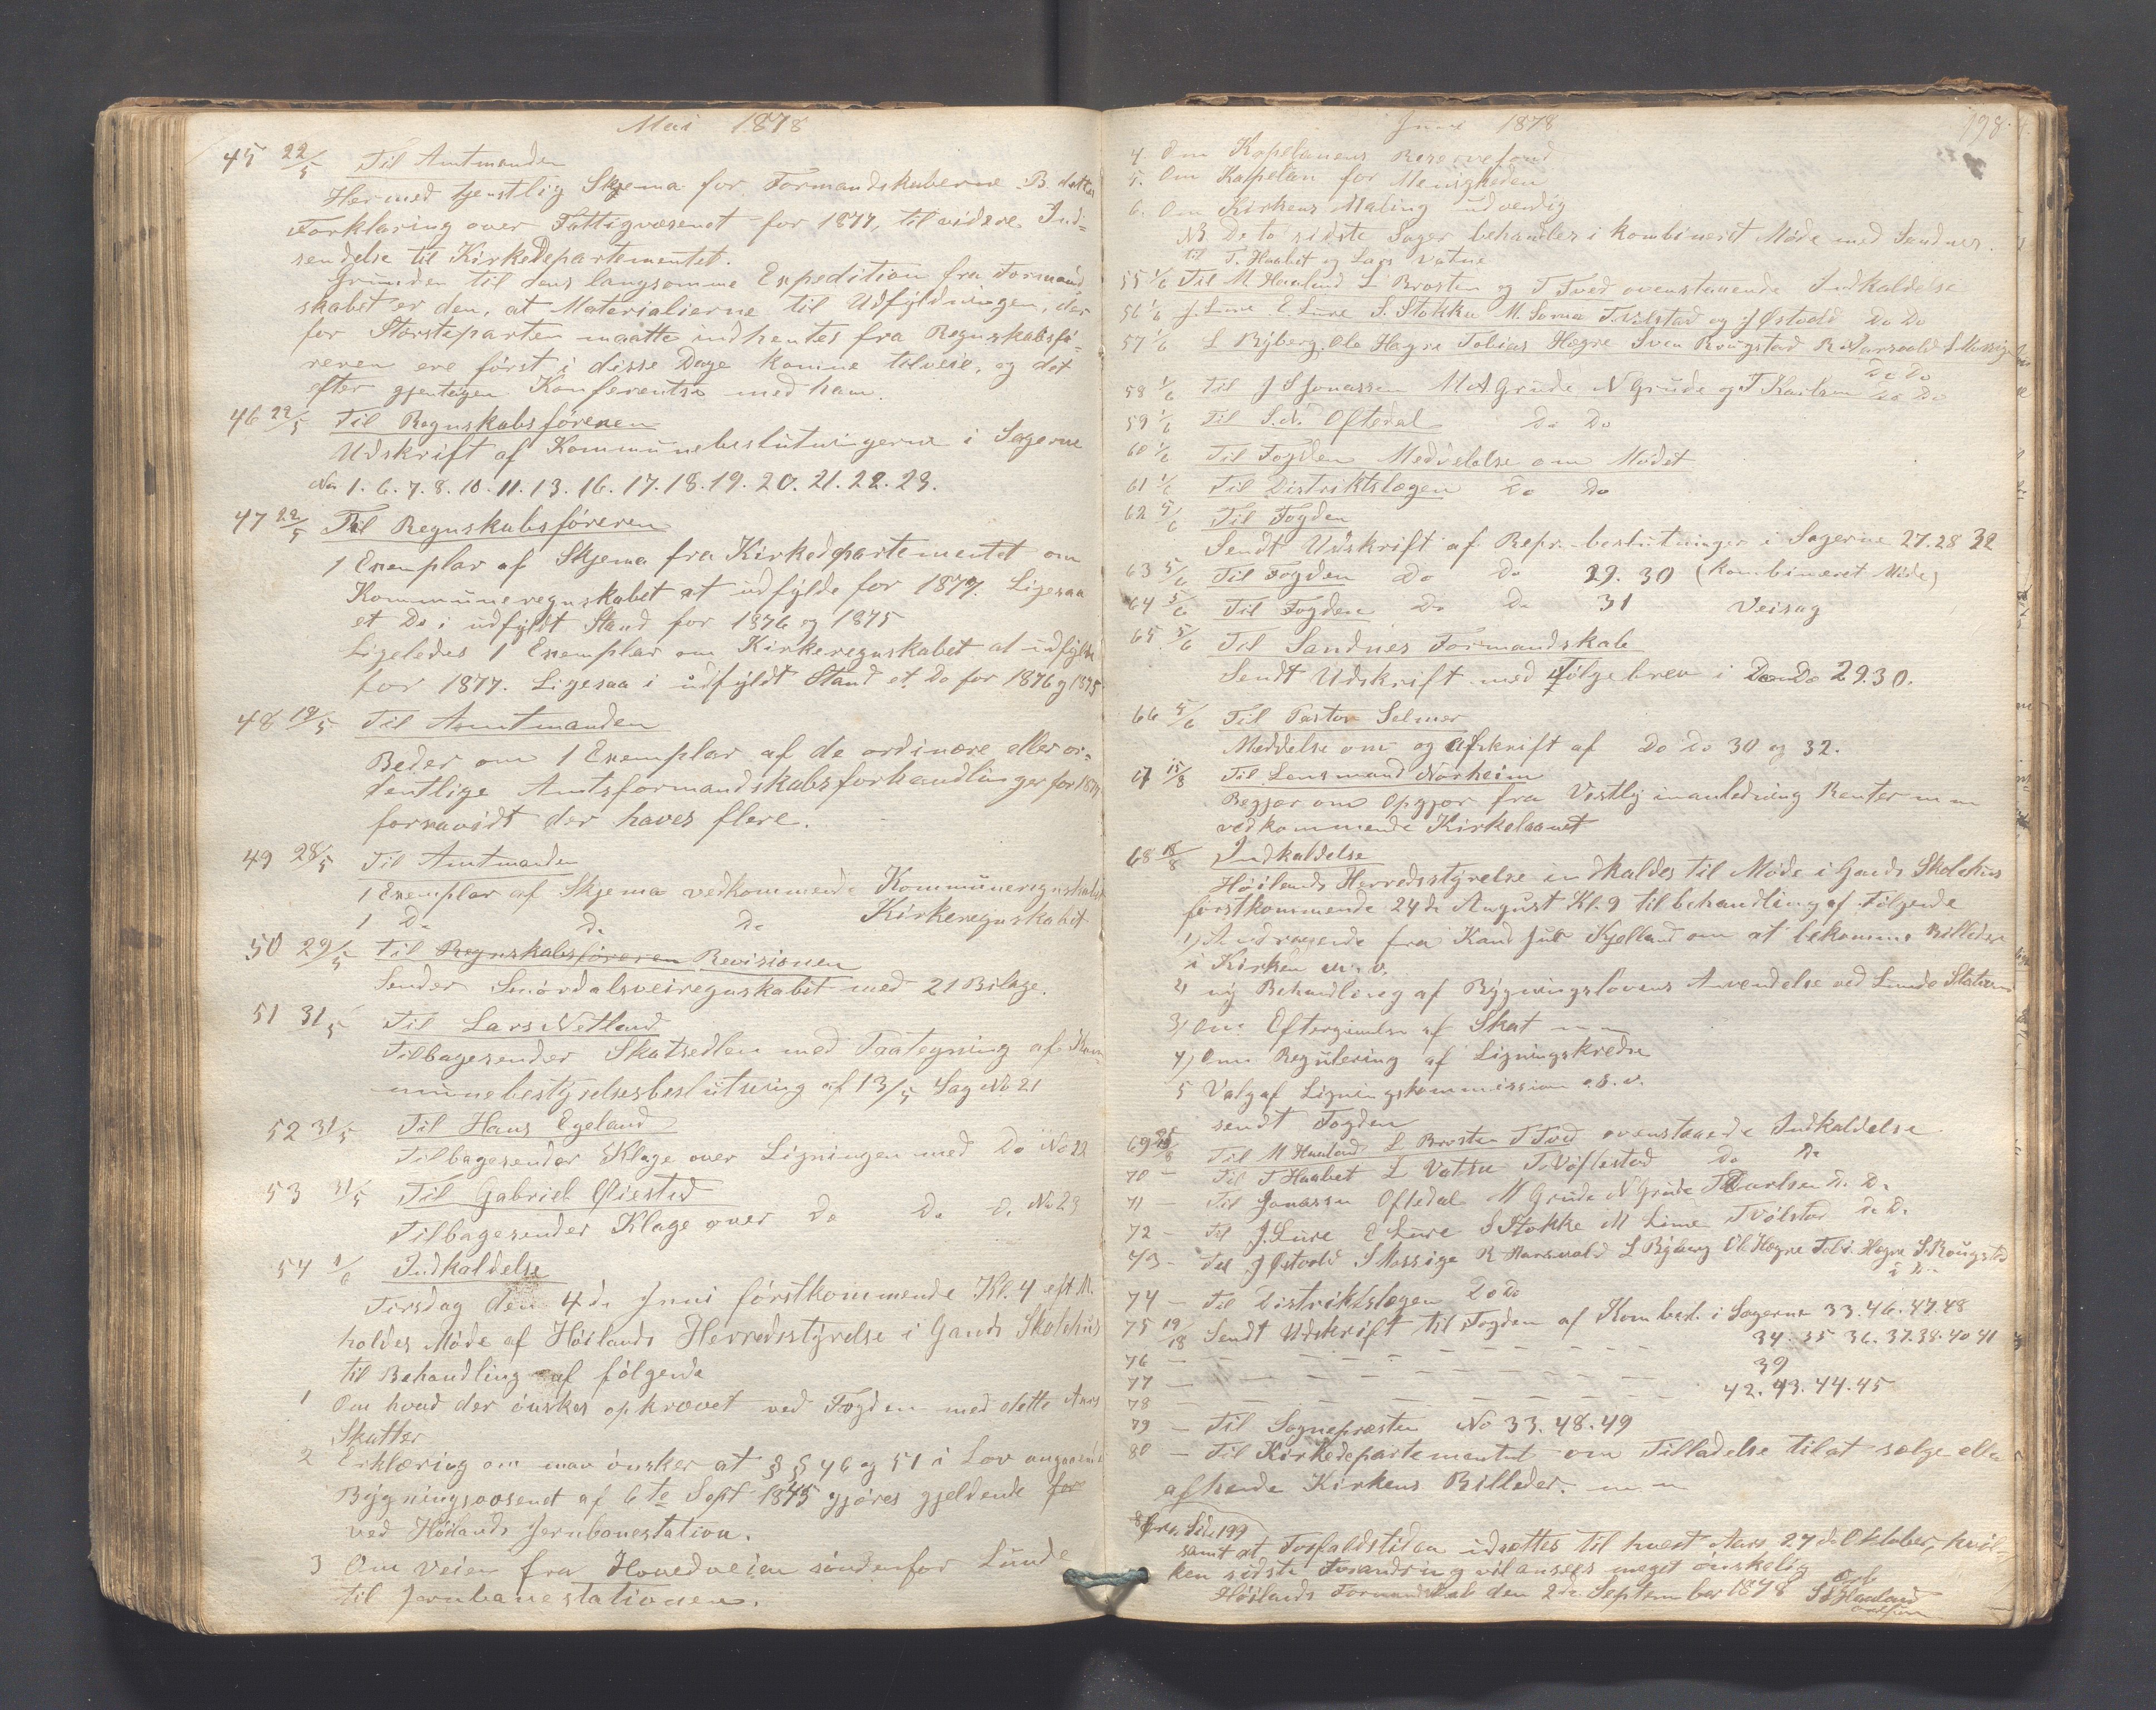 Mai 1878
45 22/5 Til Amtmanden
Hermed tjenstlig Skjema for Formandskaberne B. dettes
Forklaring over Fattigvæsenet for 1877, til videre Ind-
sendelse til Kirkedepartementet.
Grunden til dens langsomme Expedition fra Formand
skabet er den, at Materialierne til Udfyldningen, der
for Størsteparten maatte indhentes fra Regnskabsfø-
reren ere først i disse Dage komne tilveie, og det
efter gjentagen Konferentse med ham.
46 22/5 Til Regnskabsføreren
Udskrift af Kommunebeslutningerne i Sagerne
No 1. 6. 7. 8. 10. 11. 13. 16. 17. 18. 19. 20. 21. 22. 23.
47 22/5 Til Regnskabsføreren
1 Exemplar af Skjema fra Kirkedepartementet om
Kommuneregnskabet at udfylde for 1877. Ligesaa
et Do i udfyldt Stand for 1876 og 1875
Ligeledes 1 Exemplar om Kirkeregnskabet at udfylde
for 1877. Ligesaa i udfyldt Stand et Do for 1876 og 1875
48 18/5 Til Amtmanden
Beder om 1 Exemplar af de ordinære eller or-
dentlige Amtsformandskabsforhandlinger for 1877
forsavidt der haves flere.
49 28/5 Til Amtmanden
1 Exemplar af Skjema vedkommende Kommuneregnskabet
1 Do Do Do Kirkeregnskabet
50 29/5 Til Regnskabsføreren Revisionen
Sender Smørdalsveiregnskabet med 21 Bilage.
51 31/5 Til Lars Netland
Tilbagesender Skatsedlen med Paategning af Kom
munebestyrelsesbeslutning af 13/5 Sag No 21
52 31/5 Til Hans Egeland
Tilbagesender Klage over Ligningen med Do No 22
53 31/5 Til Gabriel Øiested
Tilbagesender Klage over Do Do Do No 23
54 1/6 Indkaldelse
Tirsdag den 4de Juni førstkommende Kl. 4 eft M.
holdes Møde af Høilands Herredsstyrelse i Gands Skolehus
til Behandling af følgende
1 Om hvad der ønskes opkrævet ved Fogden med dette Aars
Skatter
2 Erklæring om man ønsker at §§ 46 og 51 i Lov angaaende
Bygningsvæsenet af 6te Sept 1845 gjøres gjeldende for
ved Høilands Jernbanestation.
3 Om Veien fra Hovedveien søndenfor Lunde
til Jernbanestationen.
Juni 1878 198.
4. Om Kapelanens Reservefond
5. Om Kapelan for Menigheden
6. Om Kirkens Maling udvendig
NB De to sidste Sager behandles i kombineret Møde med Sandnes.
til T. Haabet og Lars Vatne
55 1/6 Til M Haaland L Brosten og T Tved ovenstaaende Indkaldelse
56 1/6 J. Lure E. Lure S. Stokka M. Sørnes T. Vølstad og J Østvold Do Do
57 1/6 L Ryberg, Ole Hogre Tobias Hogre Sven Rougstad R Varsvold S Mossige
Do Do
58 1/6 Til J S Jonassen M A Grude N Grude og T. Karlsen Do Do
59 1/6 Til S. N. Oftedal Do Do
60 1/6 Til Fogden Meddelelse om Mødet
61 1/6 Til Distriktslægen Do Do
62 5/6 Til Fogden
Sendt Udskrift af Repr.-beslutninger i Sagerne 27. 28 32
63 5/6 Til Fogden Do Do 29. 30 (Kombineret Møde)
64 5/6 Til Fogden Do Do 31 Veisag
65 5/6 Til Sandnes Formandskab
Sendt Udskrift med Følgebrev i Do Do 29. 30.
66 5/6 Til Pastor Selmer
Meddelse om og Afskrift af Do Do 30 og 32.
67 15/8 Til Lensmand Norheim
Begjær om Opgjør fra Vestly i anledning Renter m m
vedkommende Kirkelaanet
68 18/8 Indkaldelse
Høilands Herredsstyrelse indkaldes til Møde i Gands Skolehus
førstkommende 24de August Kl. 9 til behandling af Følgende
1) Andragende fra Kand Jul Kjelland om at bekomme Billeder
i Kirken m. v.
2) ny Behandling af Bygningslovens Anvendelse ved Lunde Station
3) Om Eftergivelse af Skat m m
4) Om Regulering af Ligningskredse
5 Valg af Ligningskommission o. s. v.
sendt Fogden
69 Til M Haaland L Brosten T Tved ovenstaaende Indkaldelse
70 – Til T Haabet L Vatne T. Vølstad Do Do
71 – Til Jonassen Oftedal M Grude N Grude T Carlsen Do Do
72 – Til J. Lure E Lure S Stokke M Lime T Vølstad Do Do
73 – Til J Østvold S Mossige R Varsvold L Ryberg Ol. Hogre Tob. Hogre S. Rougstad
Do Do
74 – Til Distriktslægen Do Do
75 19/18 Sendt Udskrift til Fogden af Kom besl. i Sagerne 33. 46. 47. 48
76 — — — — — — 34. 35 36. 37. 38. 40 41
77 — — — — — — 39
78 — — — — — — 42. 43. 44. 45
79 – Til Sognepresten No 33. 48. 49
80 – Til Kirkedepartementet om Tilladelse til at sælge eller
afhende Kirkens Billeder. m m
fra Side 199
samt at Forfaldstiden udsættes til hvert Aars 27de Oktober, hvil-
ken sidste Forandring vil ansees meget ønskelig
Høilands Formandskab den 2de September 1878 Haaland